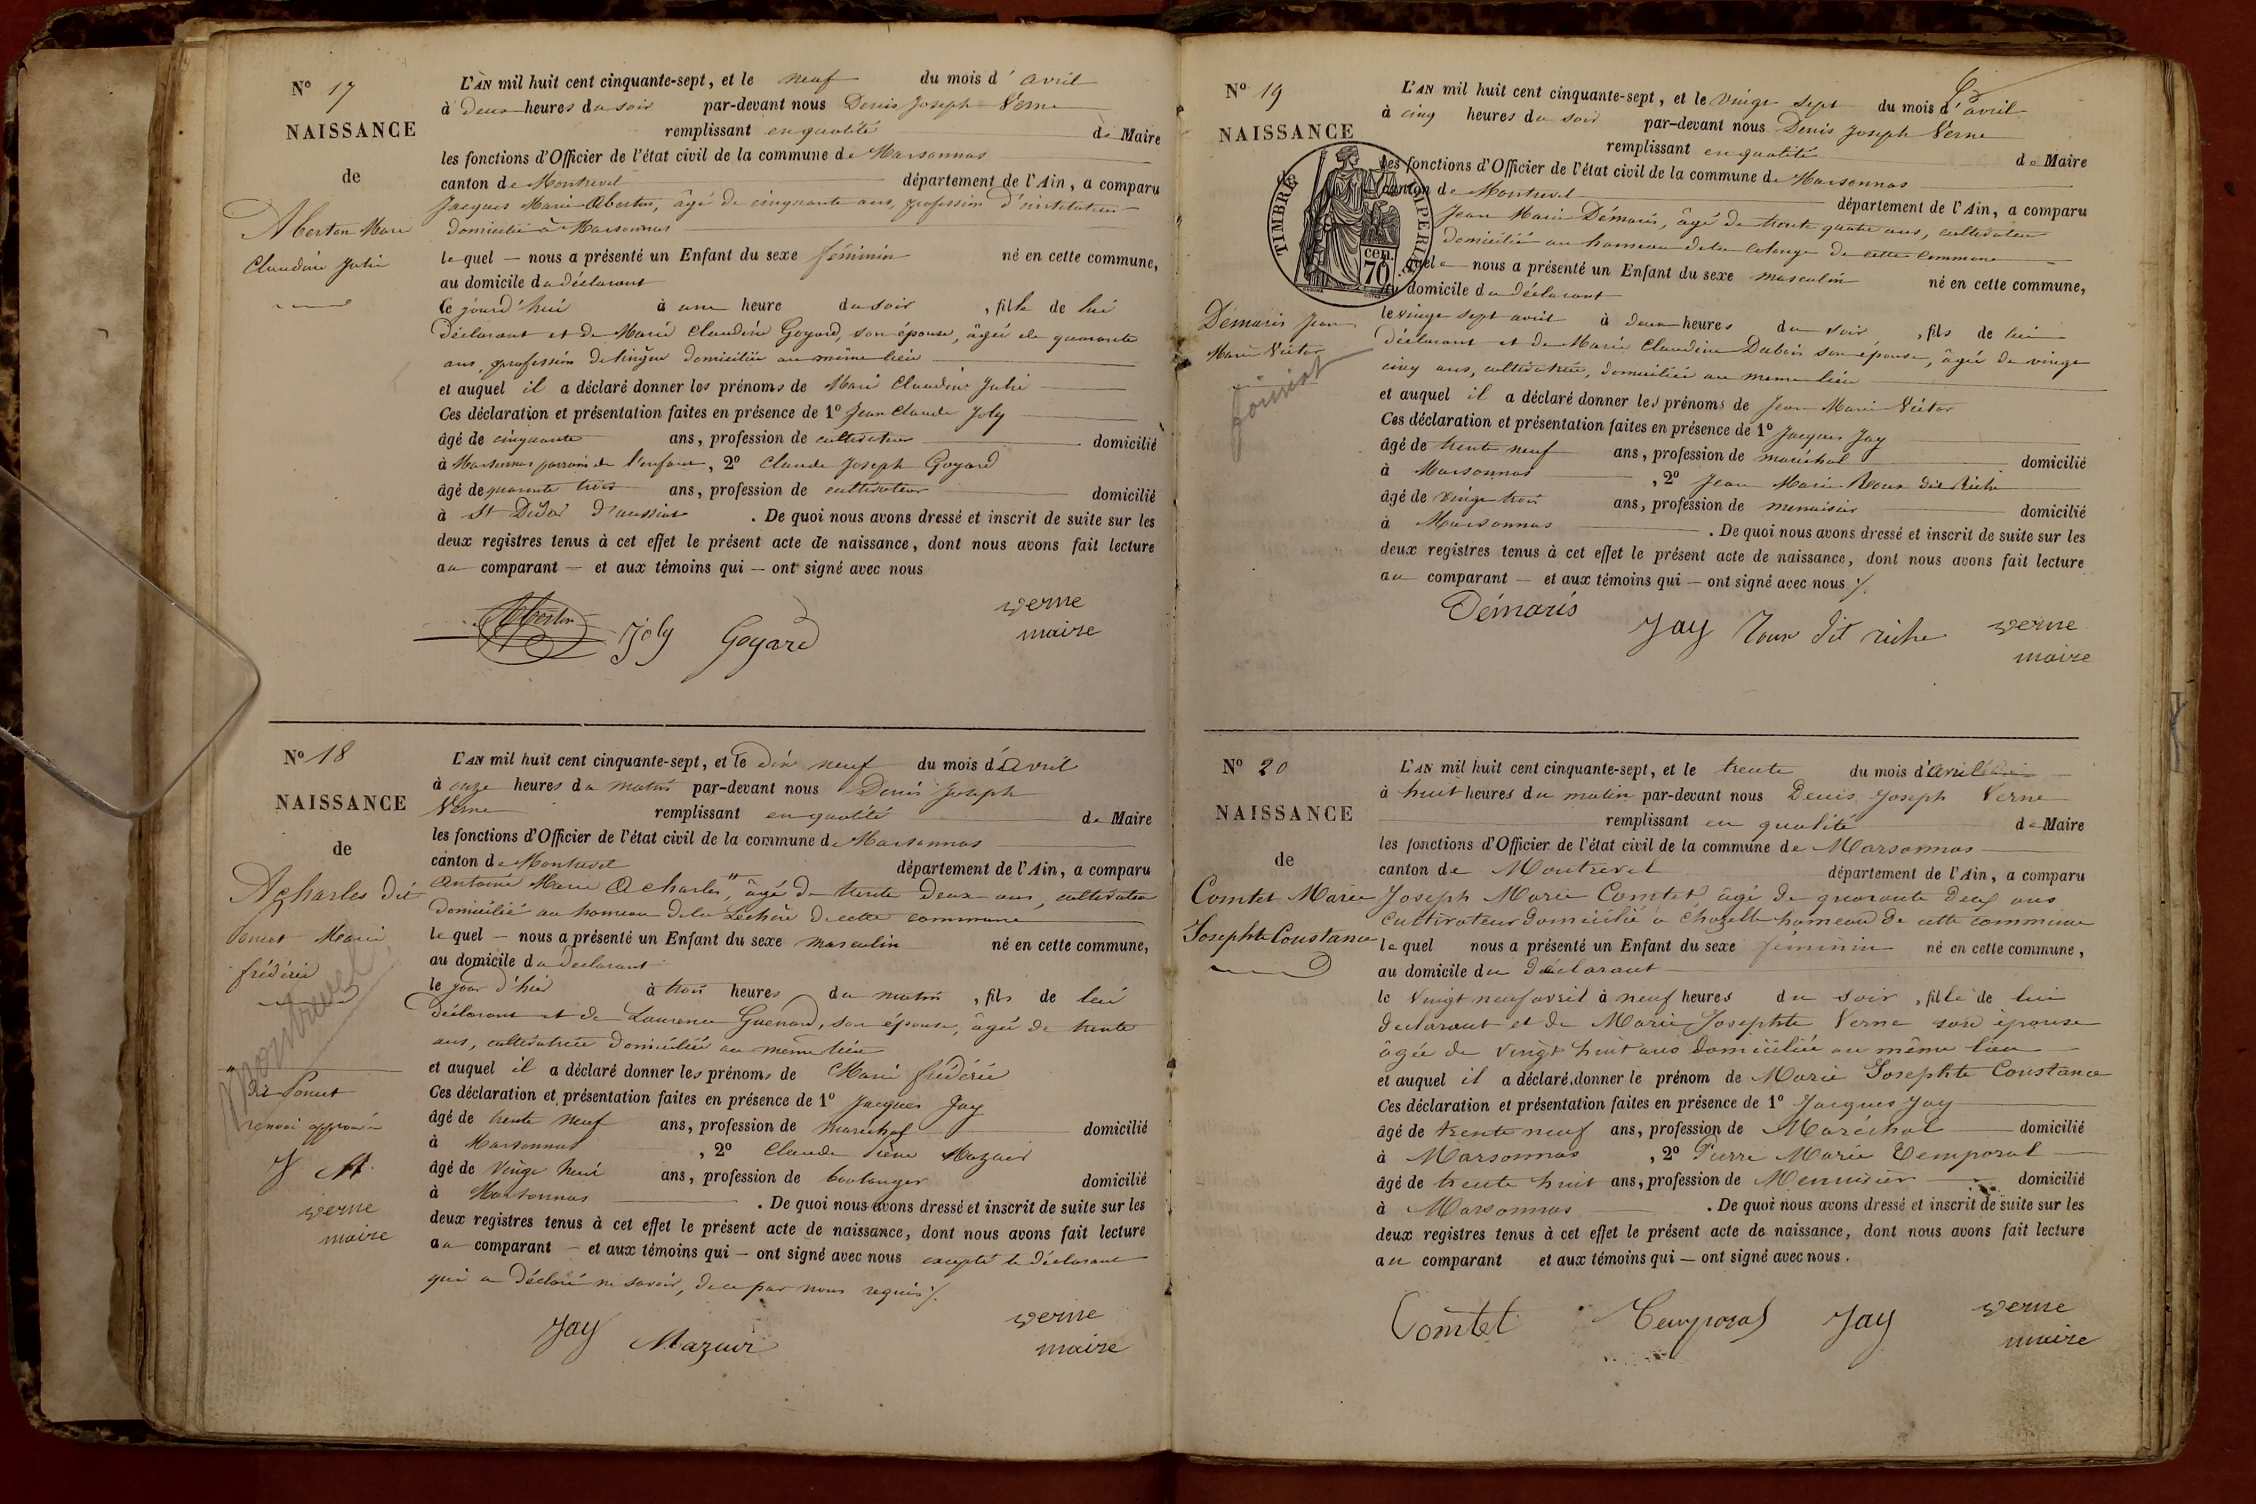 Nº 17
NAISSANCE
de
Aberton Marie
Claudine Julie
L'AN mil huit cent cinquante-sept, et le neuf du mois d'avril
à deux heures du soir par-devant nous Denis Joseph Verne
remplissant en qualité de Maire
les fonctions d'Officier de l'état civil de la commune de Marsonnas
canton de Montrevel département de l'Ain, a comparu
Jacques Marie Aberton, âgé de cinquante ans, profession d'instituteur
domicilié à Marsonnas
lequel — nous a présenté un Enfant du sexe féminin né en cette commune,
au domicile du déclarant
ce jourd'hui à une heure du soir, fille de lui
déclarant et de Marie Claudine Goyard, son épouse, âgée de quarante
ans, profession de lingère domiciliée au même lieu
et auquel il a déclaré donner les prénoms de Marie Claudine Julie
Ces déclaration et présentation faites en présence de 1º Jean Claude Joly
âgé de cinquante ans, profession de cultivateur domicilié
à Marsonnas parrain de l'enfant, 2º Claude Joseph Goyard
âgé de quarante trois ans, profession de cultivateur domicilié
à St Didier d'aussiat. De quoi nous avons dressé et inscrit de suite sur les
deux registres tenus à cet effet le présent acte de naissance, dont nous avons fait lecture
au comparant — et aux témoins qui — ont signé avec nous
Aberton Joly Goyard verne
maire
Nº 18
NAISSANCE
de
Acharles dit
Poncet Marie
frédéric
Montrevel
dit Poncet
renvoi approuvé
verne
maire
L'AN mil huit cent cinquante-sept, et le dix neuf du mois d'avril
à onze heures du matin par-devant nous Denis Joseph
Verne remplissant en qualité de Maire
les fonctions d'Officier de l'état civil de la commune de Marsonnas
canton de Montrevel département de l'Ain, a comparu
Antoine Marie Acharles, âgé de trente deux ans, cultivateur
domicilié au hameau de la Lechère de cette commune
lequel — nous a présenté un Enfant du sexe masculin né en cette commune,
au domicile du déclarant
le jour d'hier à trois heures du matin, fils de lui
déclarant et de Laurence Guénard, son épouse, âgée de trente
ans, cultivatrice domiciliée au même lieu
et auquel il a déclaré donner les prénoms de Marie frédéric
Ces déclaration et présentation faites en présence de 1º Jacques Jay
âgé de trente neuf ans, profession de maréchal domicilié
à Marsonnas, 2º Claude Mazuir
âgé de vingt huit ans, profession de boulanger domicilié
à Marsonnas. De quoi nous avons dressé et inscrit de suite sur les
deux registres tenus à cet effet le présent acte de naissance, dont nous avons fait lecture
au comparant — et aux témoins qui — ont signé avec nous excepté le déclarant
qui a déclaré ne savoir, de ce par nous requis /.
Jay Mazuir verne
maire
6
Nº 19
NAISSANCE
TIMBRE IMPERIAL
70 cen.
Démaris Jean
Marie Victor
L'AN mil huit cent cinquante-sept, et le vingt sept du mois d'avril
à cinq heures du soir par-devant nous Denis Joseph Verne
remplissant en qualité de Maire
les fonctions d'Officier de l'état civil de la commune de Marsonnas
canton de Montrevel département de l'Ain, a comparu
Jean Marie Démaris, âgé de trente quatre ans, cultivateur
domicilié au hameau de la de cette commune
quel — nous a présenté un Enfant du sexe masculin né en cette commune,
au domicile du déclarant
le vingt sept avril à deux heures du soir, fils de lui
déclarant et de Marie Claudine Dubois son épouse, âgée de vingt
cinq ans, cultivatrice, domiciliée au même lieu
et auquel il a déclaré donner les prénoms de Jean Marie Victor
Ces déclaration et présentation faites en présence de 1º Jacques Jay
âgé de trente neuf ans, profession de maréchal domicilié
à Marsonnas, 2º Jean Marie Roux dit Riche
âgé de vingt trois ans, profession de menuisier domicilié
à Marsonnas. De quoi nous avons dressé et inscrit de suite sur les
deux registres tenus à cet effet le présent acte de naissance, dont nous avons fait lecture
au comparant — et aux témoins qui — ont signé avec nous /.
Démaris Jay Roux dit riche verne
maire
Nº 20
NAISSANCE
de
Comtet Marie
Josephte Constance
L'AN mil huit cent cinquante-sept, et le trente du mois d'avril
à huit heures du matin par-devant nous Denis Joseph Verne
remplissant en qualité de Maire
les fonctions d'Officier de l'état civil de la commune de Marsonnas
canton de Montrevel département de l'Ain, a comparu
Joseph Marie Comtet âgé de quarante deux ans
cultivateur domicilié à Chazelle hameau de cette commune
lequel nous a présenté un Enfant du sexe féminin né en cette commune,
au domicile du déclarant
le vingt neuf avril à neuf heures du soir, fille de lui
declarant et de Marie Josephte Verne son épouse
âgée de vingt huit ans domiciliée au même lieu
et auquel il a déclaré donner le prénom de Marie Josephte Constance
Ces déclaration et présentation faites en présence de 1º Jacques Jay
âgé de trente neuf ans, profession de Maréchal domicilié
à Marsonnas, 2º Pierre Marie Temporal
âgé de trente huit ans, profession de Menuisier domicilié
à Marsonnas. De quoi nous avons dressé et inscrit de suite sur les
deux registres tenus à cet effet le présent acte de naissance, dont nous avons fait lecture
au comparant et aux témoins qui — ont signé avec nous.
Comtet Temporal Jay verne
maire